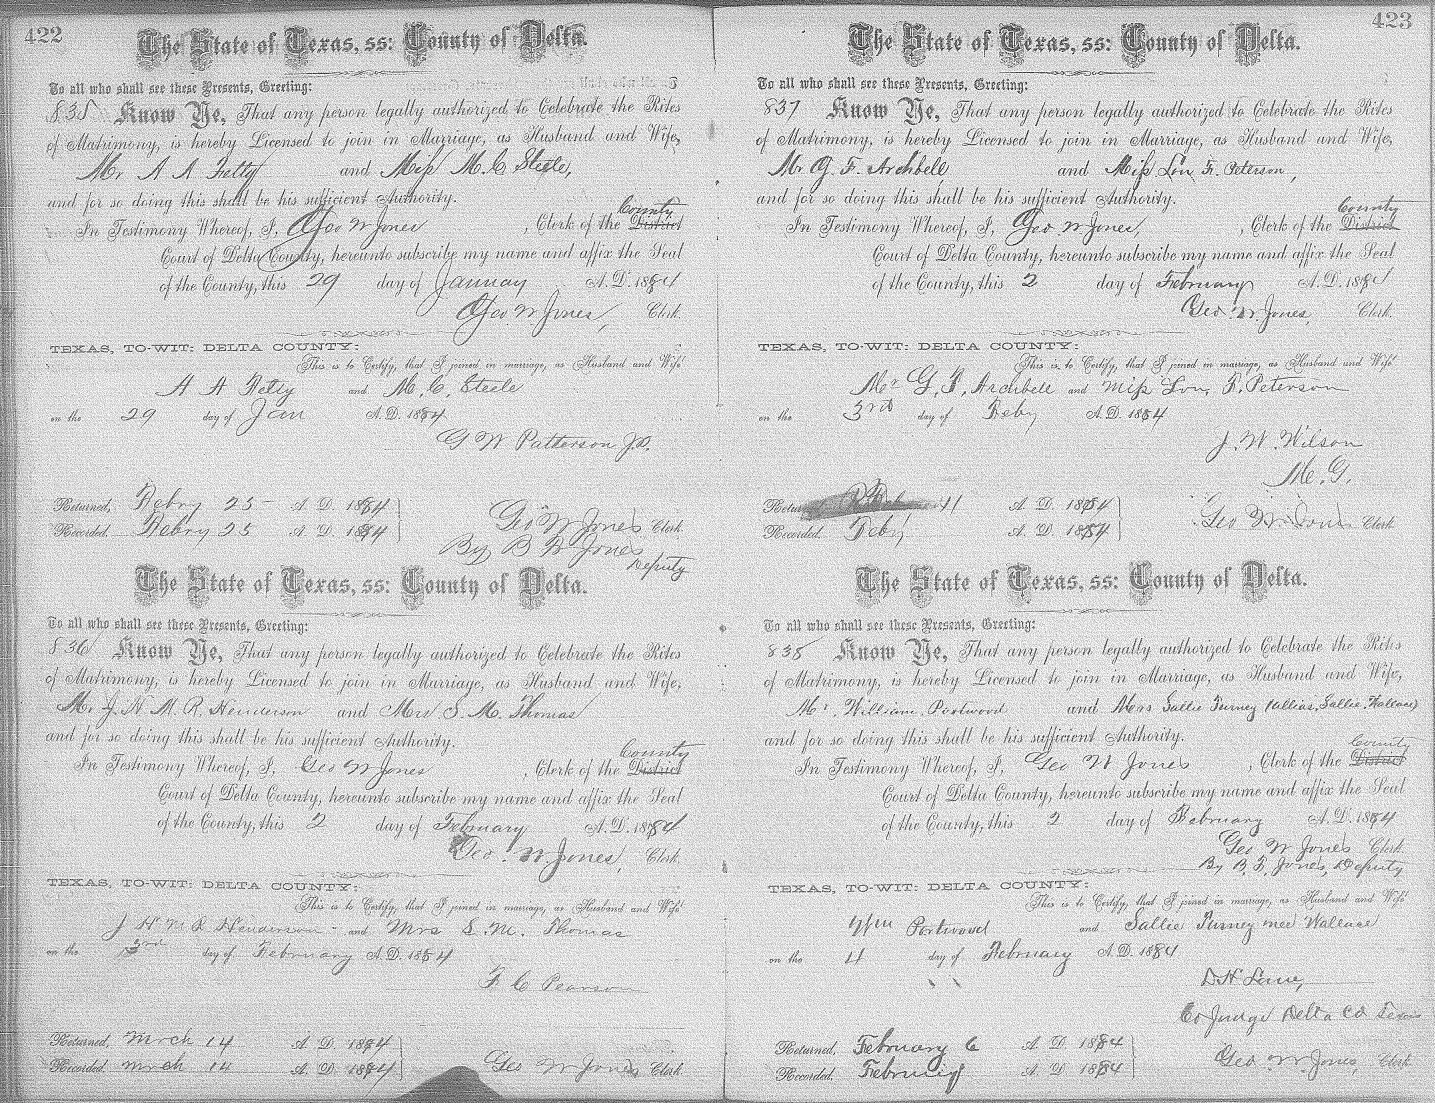 422
The State of Texas, ss: County of Delta.
To all who shall see these Presents, Greeting:
835 Know Ye, That any person legally authorized to Celebrate the Rites
of Matrimony, is hereby Licensed to join in Marriage, as Husband and Wife,
Mr A A Fetty and Miss M. C Steele,
and for so doing this shall be his sufficient Authority.
County
In Testimony Whereof, I, Geo W Jones, Clerk of the District
Court of Delta County, hereunto subscribe my name and affix the Seal
of the County, this 29 day of January A. D. 1884
Geo W Jones, Clerk.
TEXAS, TO-WIT: DELTA COUNTY:
This is to Certify, that I joined in marriage, as Husband and Wife
A A Fetty and M. C. Steele
on the 29 day of Jan A. D. 1884
G W Patterson J.P.
Returned, Febry 25 A. D. 1884
Recorded, Febry 25 A. D. 1884
Geo W Jones Clerk
By B F Jones
Deputy
The State of Texas, ss: County of Delta.
To all who shall see these Presents, Greeting:
836 Know Ye, That any person legally authorized to Celebrate the Rites
of Matrimony, is hereby Licensed to join in Marriage, as Husband and Wife,
Mr. J H M R Henderson and Mrs S. M. Thomas
and for so doing this shall be his sufficient Authority.
County
In Testimony Whereof, I, Geo W Jones, Clerk of the District
Court of Delta County, hereunto subscribe my name and affix the Seal
of the County, this 2 day of February A. D. 1884
Geo. W. Jones, Clerk.
TEXAS, TO-WIT: DELTA COUNTY:
This is to Certify, that I joined in marriage, as Husband and Wife
J H M R Henderson and Mrs S. M. Thomas
on the 3rd day of February A. D. 1884
F C Pearson
Returned, March 14 A. D. 1884
Recorded, March 14 A. D. 1884
Geo W Jones Clerk
423
The State of Texas, ss: County of Delta.
To all who shall see these Presents, Greeting:
837 Know Ye, That any person legally authorized to Celebrate the Rites
of Matrimony, is hereby Licensed to join in Marriage, as Husband and Wife,
Mr G. F. Archbell and Miss Lou F. Peterson,
and for so doing this shall be his sufficient Authority.
County
In Testimony Whereof, I, Geo W Jones, Clerk of the District
Court of Delta County, hereunto subscribe my name and affix the Seal
of the County, this 2 day of February A. D. 1884
Geo. W. Jones, Clerk.
TEXAS, TO-WIT: DELTA COUNTY:
This is to Certify, that I joined in marriage, as Husband and Wife
Mr G. F. Archbell and Miss Lou. F. Peterson
on the 3rd day of Feby A. D. 1884
J. W. Wilson
M. G.
Returned, 11 A. D. 1884
Recorded, Feby A. D. 1884
Geo W Jones Clerk
The State of Texas, ss: County of Delta.
To all who shall see these Presents, Greeting:
838 Know Ye, That any person legally authorized to Celebrate the Rites
of Matrimony, is hereby Licensed to join in Marriage, as Husband and Wife,
Mr. William Portwood and Mrs Sallie Turney (allias, Sallie Wallace)
and for so doing this shall be his sufficient Authority.
County
In Testimony Whereof, I, Geo W Jones, Clerk of the District
Court of Delta County, hereunto subscribe my name and affix the Seal
of the County, this 2 day of February A. D. 1884
Geo W Jones Clerk
By B. F. Jones, Deputy
TEXAS, TO-WIT: DELTA COUNTY:
This is to Certify, that I joined in marriage, as Husband and Wife
Wm Portwood and Sallie Turney nee Wallace
on the 4 day of February A. D. 1884
D H Lane,
Co Judge Delta Co Texas
Returned, February 6 A. D. 1884
Recorded, February A. D. 1884
Geo. W. Jones, Clerk